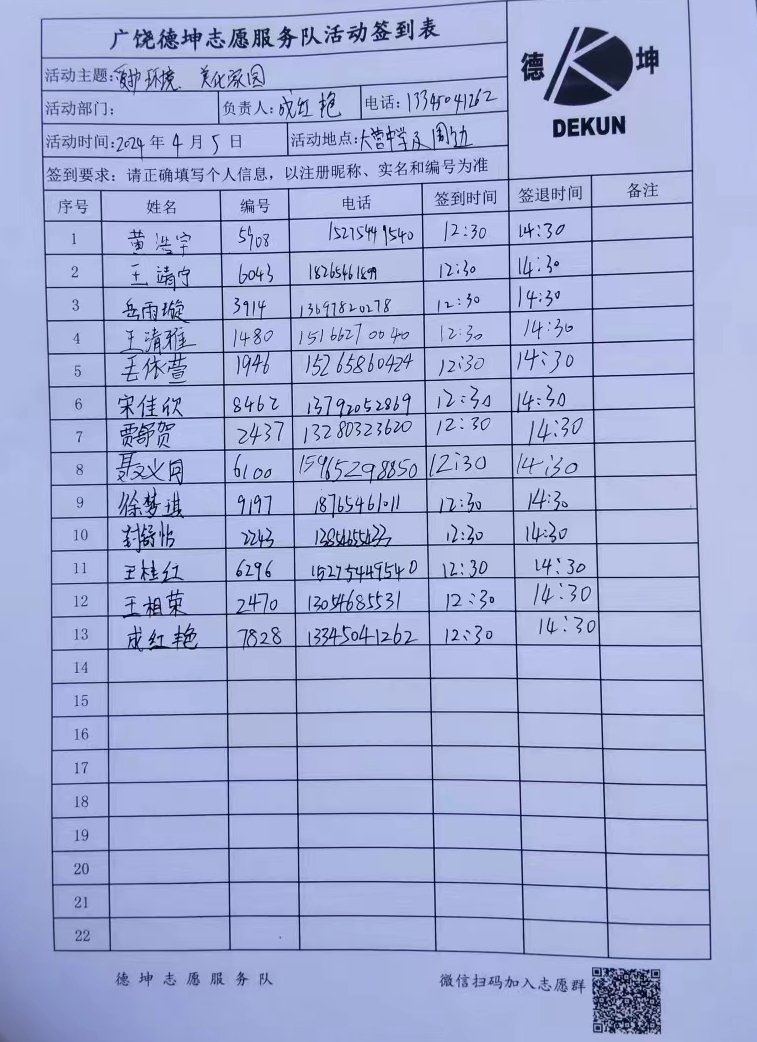 广饶德坤志愿服务队活动签到表
德 坤
DEKUN
活动主题:爱护环境、美化家园
活动部门: 负责人:成红艳 电话:13345041262
活动时间:2024年4月5日 活动地点:大营中学及周边
签到要求:请正确填写个人信息,以注册昵称、实名和编号为准
序号 姓名 编号 电话 签到时间 签退时间 备注
1 黄浩宇 5908 15275449540 12:30 14:30
2 王靖宁 6043 18265461899 12:30 14:30
3 岳雨璇 3914 13697820278 12:30 14:30
4 王清雅 1480 15166270040 12:30 14:30
5 王依萱 1946 15265860424 12:30 14:30
6 宋佳欣 8462 13792052869 12:30 14:30
7 贾舒贺 2437 13280323620 12:30 14:30
8 聂义同 6100 15965298850 12:30 14:30
9 徐梦琪 9197 18765461011 12:30 14:30
10 封舒怡 2243 12:30 14:30
11 王桂红 6296 15275449540 12:30 14:30
12 王相荣 2470 13054685531 12:30 14:30
13 成红艳 7828 13345041262 12:30 14:30
14
15
16
17
18
19
20
21
22
德坤志愿服务队 微信扫码加入志愿群